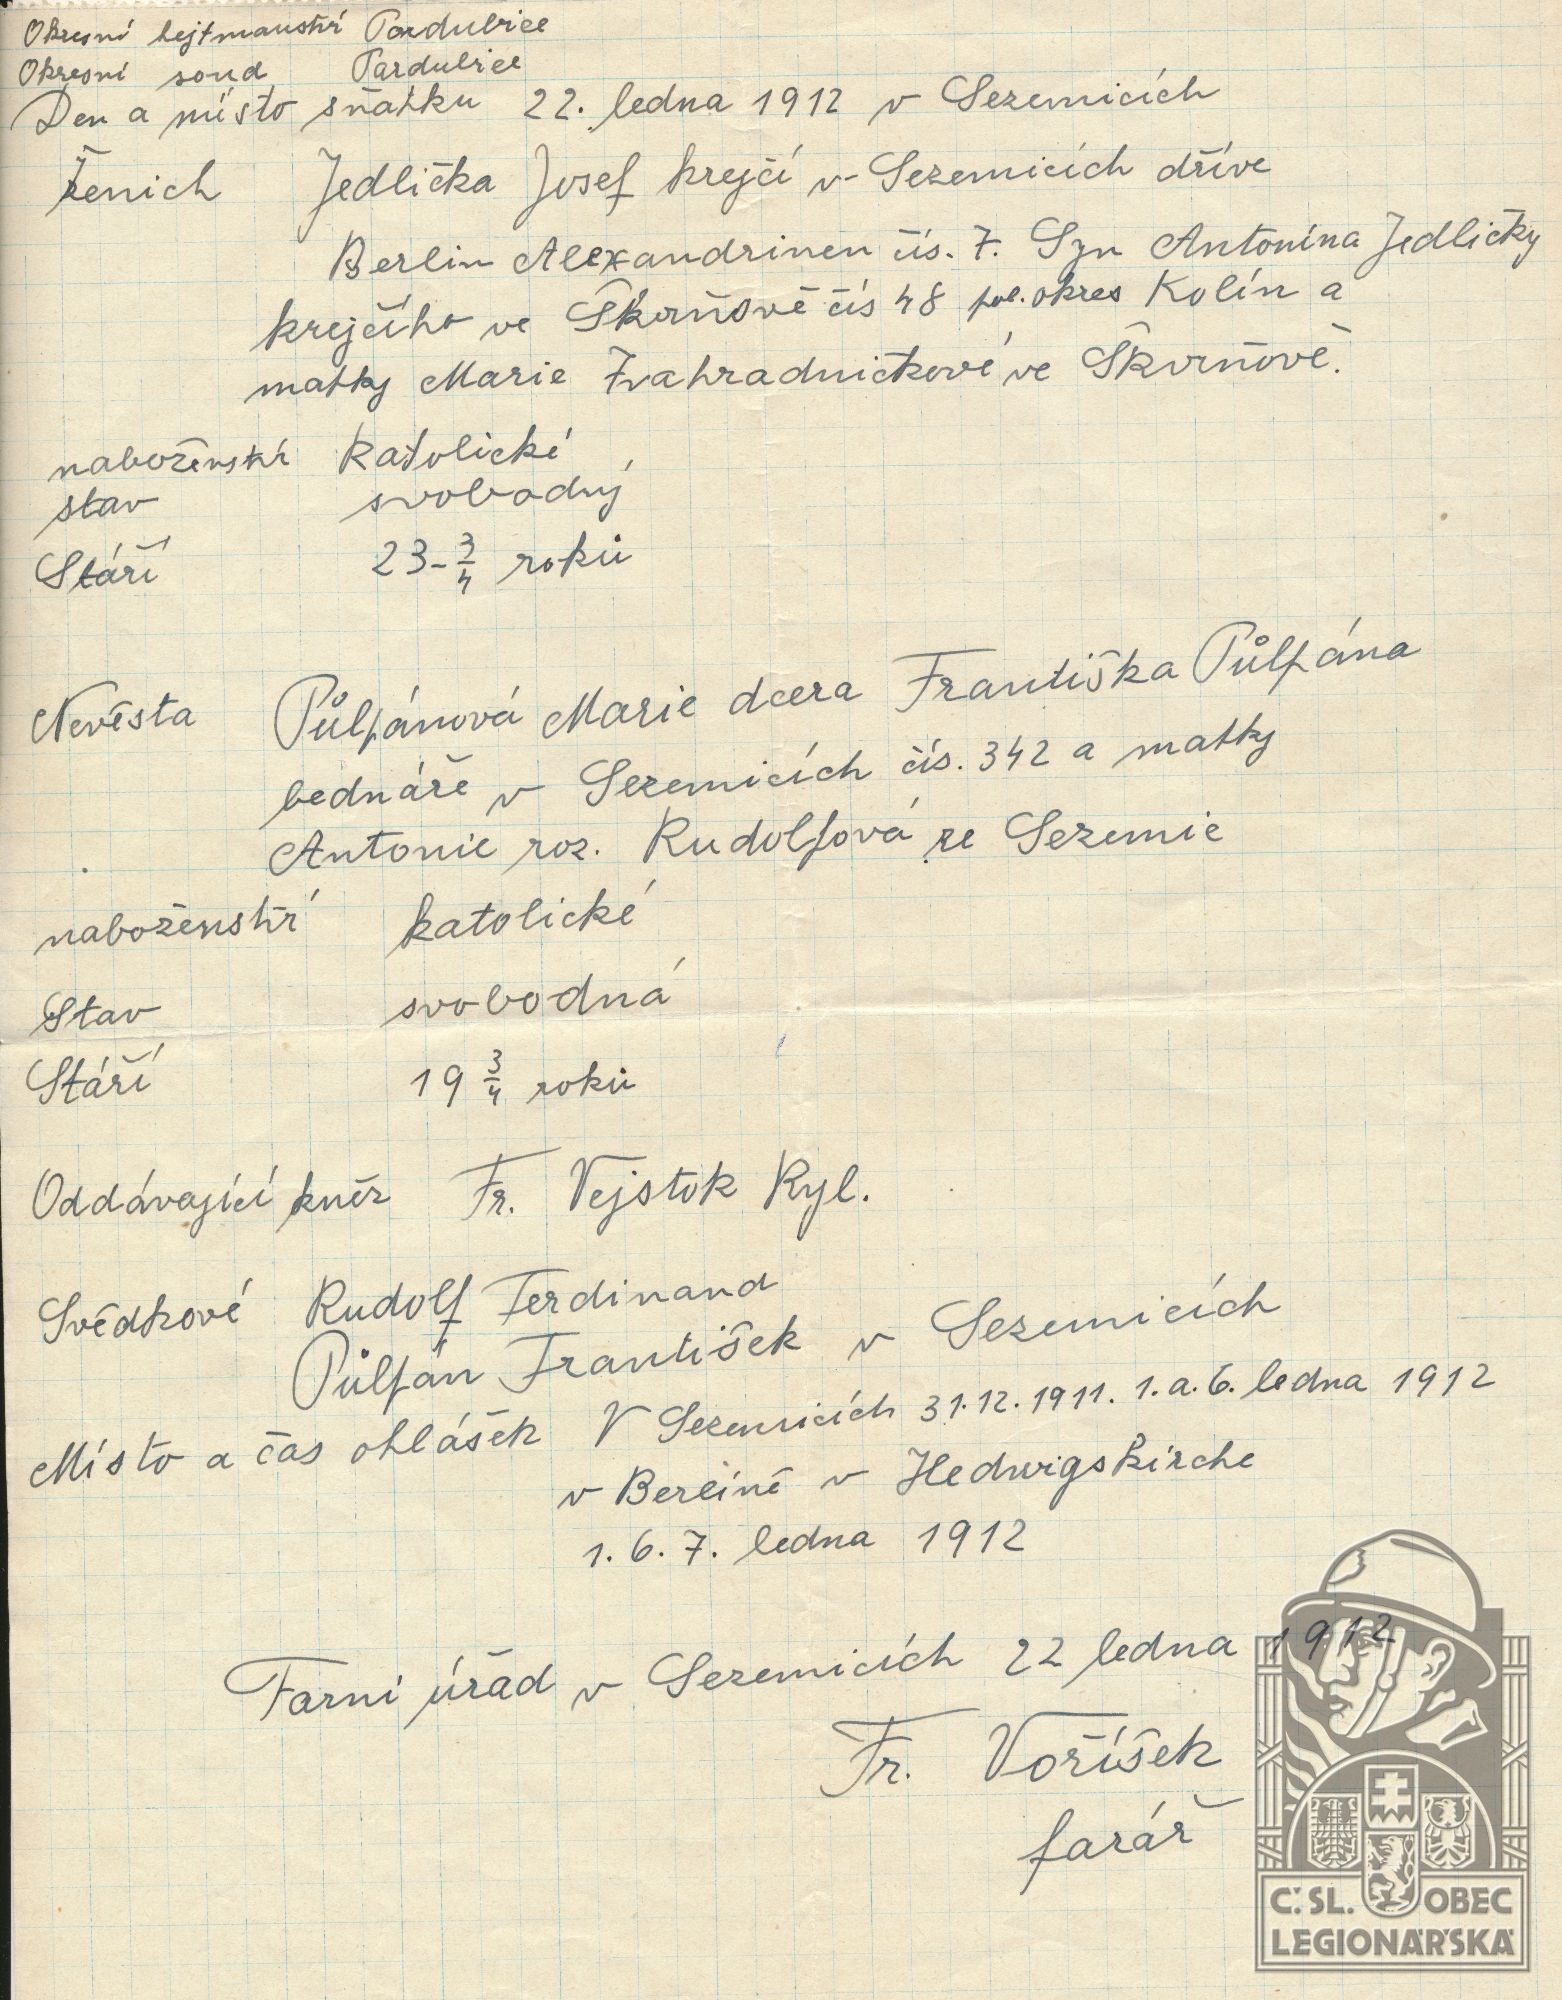 Okresní hejtmanství Pardubice
Okresní soud Pardubice
Den a místo sňatku 22. ledna 1912 v Sezemicích
Ženich Jedlička Josef krejčí v Sezemicích dříve
Berlin Alexandrinen čís. 7. Syn Antonína Jedličky
krejčího ve Škvrňově čís 48 pol. okres Kolín a
matky Marie Zvahradničkové ve Škvrňově.
naboženství katolické
stav svobodný
Stáří 23-3/4 roků
Nevěsta Půlpánová Marie dcera Františka Půlpána
bednáře v Sezemicích čís. 342 a matky
Antonie roz. Rudolfová ze Sezemic
naboženství katolické
Stav svobodná
Stáří 19 3/4 roků
Oddávající kněz Fr. Vejstok Kpl.
Svědkové Rudolf Ferdinand
Půlpán František v Sezemicích
Místo a čas ohlášek V Sezemicích 31.12.1911. 1. a. 6. ledna 1912
v Berlíně v Hedwigskirche
1. 6. 7. ledna 1912
Farní úřad v Sezemicích 22 ledna 1912
Fr. Voříšek
farář
Č. SL. OBEC
LEGIONÁŘSKÁ